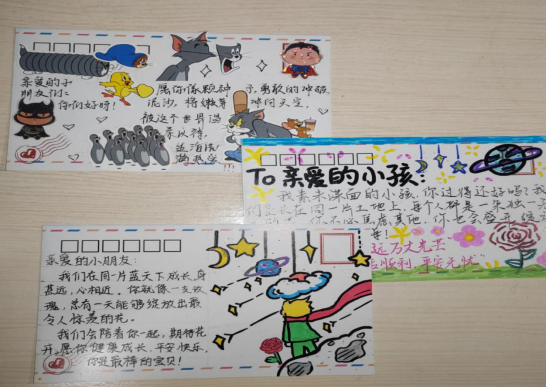 亲爱的小
朋友们:
你们好呀!
愿你像颗种子,勇敢的冲破
泥沙,将嫩芽
被这个世界温
柔以待
To 亲爱的小孩:
我素未谋面的小孩,你过得还好吗?我
同一片土地上,每个人都是一朵独一
焦虑其他,你也会
远万丈光芒
顺利 平安无忧
亲爱的小朋友:
我们在同一片蓝天下成长,身
甚远,心相近。你就像一支玫
瑰,总有一天能够绽放出最
令人惊羡的花。
我们会陪着你一起,期待花
开。愿你健康成长,平安快乐,
你是最棒的宝贝!